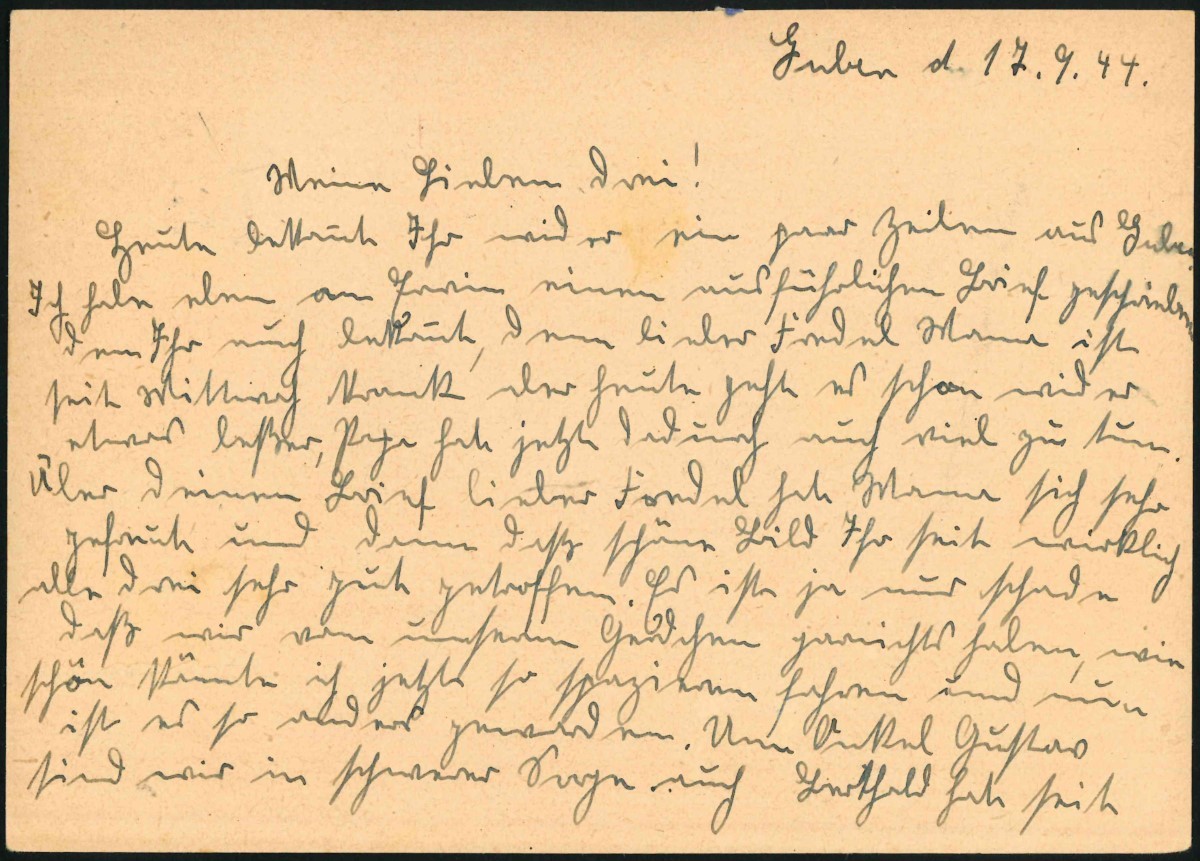 Guben d. 17.9.44.
Meine Lieben drei!
Heute bekomt Ihr wider ein paar Zeilen aus Guben
Ich habe eben an Erwin einen ausführlichen Brief geschrieben
den Ihr auch bekomt, denn lieber Fredel Mama ist
seit Mittwoch krank aber heute geht es schon wider
etwas beßer, Papa hat jetzt dadurch auch viel zu tun.
Über deinen Brief lieber Fredel hat Mama sich sehr
gefreut und dann daß schöne Bild Ihr seit wirklich
alle drei sehr gut getroffen. Es ist ja nur schade
daß wir von unserem Gerdchen garnichts haben, wie
schön könnte ich jetzt so spazieren fahren und nun
ist es so anders geworden. Um Onkel Gustav
sind wir in schwerer Sorge auch Berthold hat seit